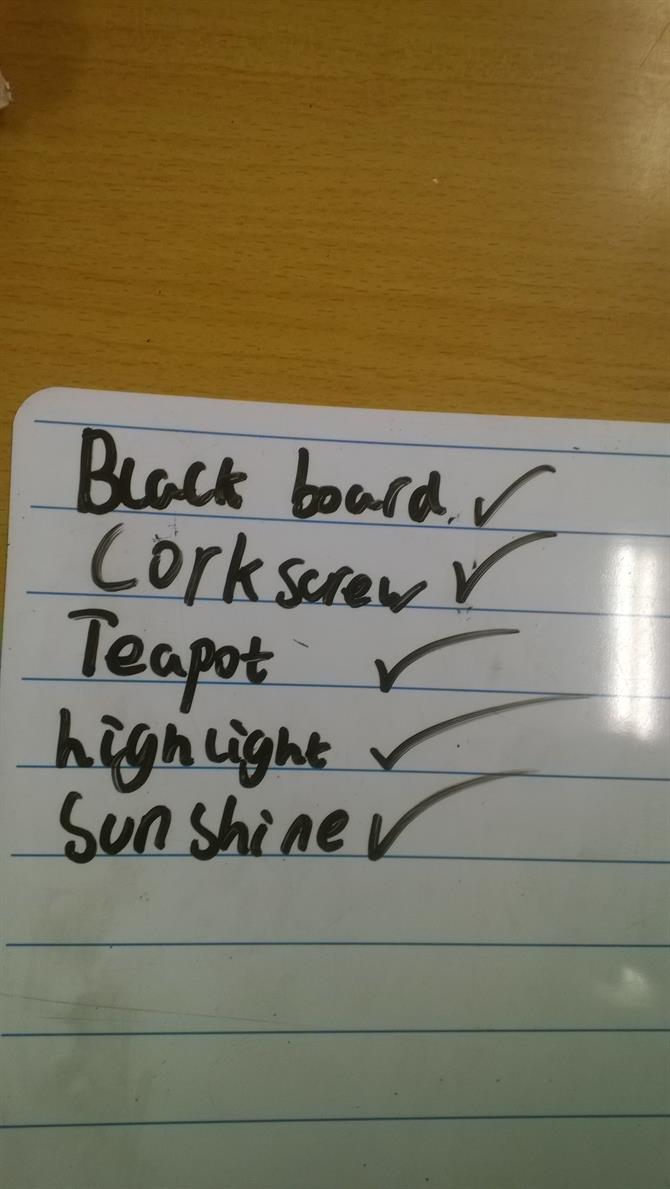 Black board. ✓
Corkscrew ✓
Teapot ✓
highlight ✓
Sunshine ✓